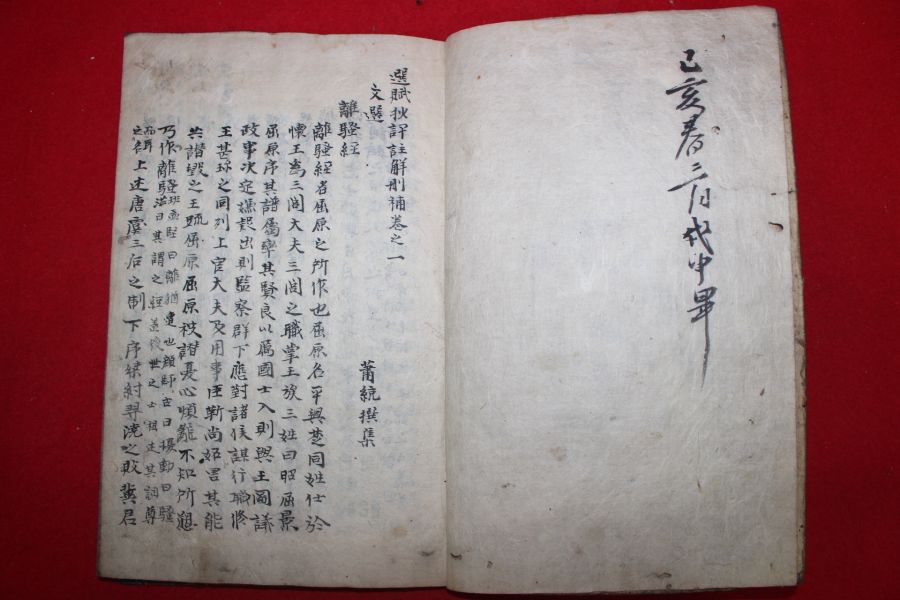 己亥春二月戊申畢
選賦抄評註解刪補卷之一
文選
蕭統撰集
離騷經
離騷經者屈原之所作也屈原名平與楚同姓仕於
懷王爲三閭大夫三閭之職掌王族三姓曰昭屈景
屈原序其譜屬率其賢良以厲國士入則與王圖議
政事決定嫌疑出則監察群下應對諸侯謀行職修
王甚珍之同列上官大夫及用事臣靳尚妬害其能
共譖毀之王疏屈原屈原被譖憂心煩亂不知所愬
乃作離騷班孟堅曰離猶遭也顏師古曰擾動曰騷
洪曰其謂之經蓋後世之士祖述其詞尊
之名上述唐虞三后之制下序桀紂羿澆之敗冀君